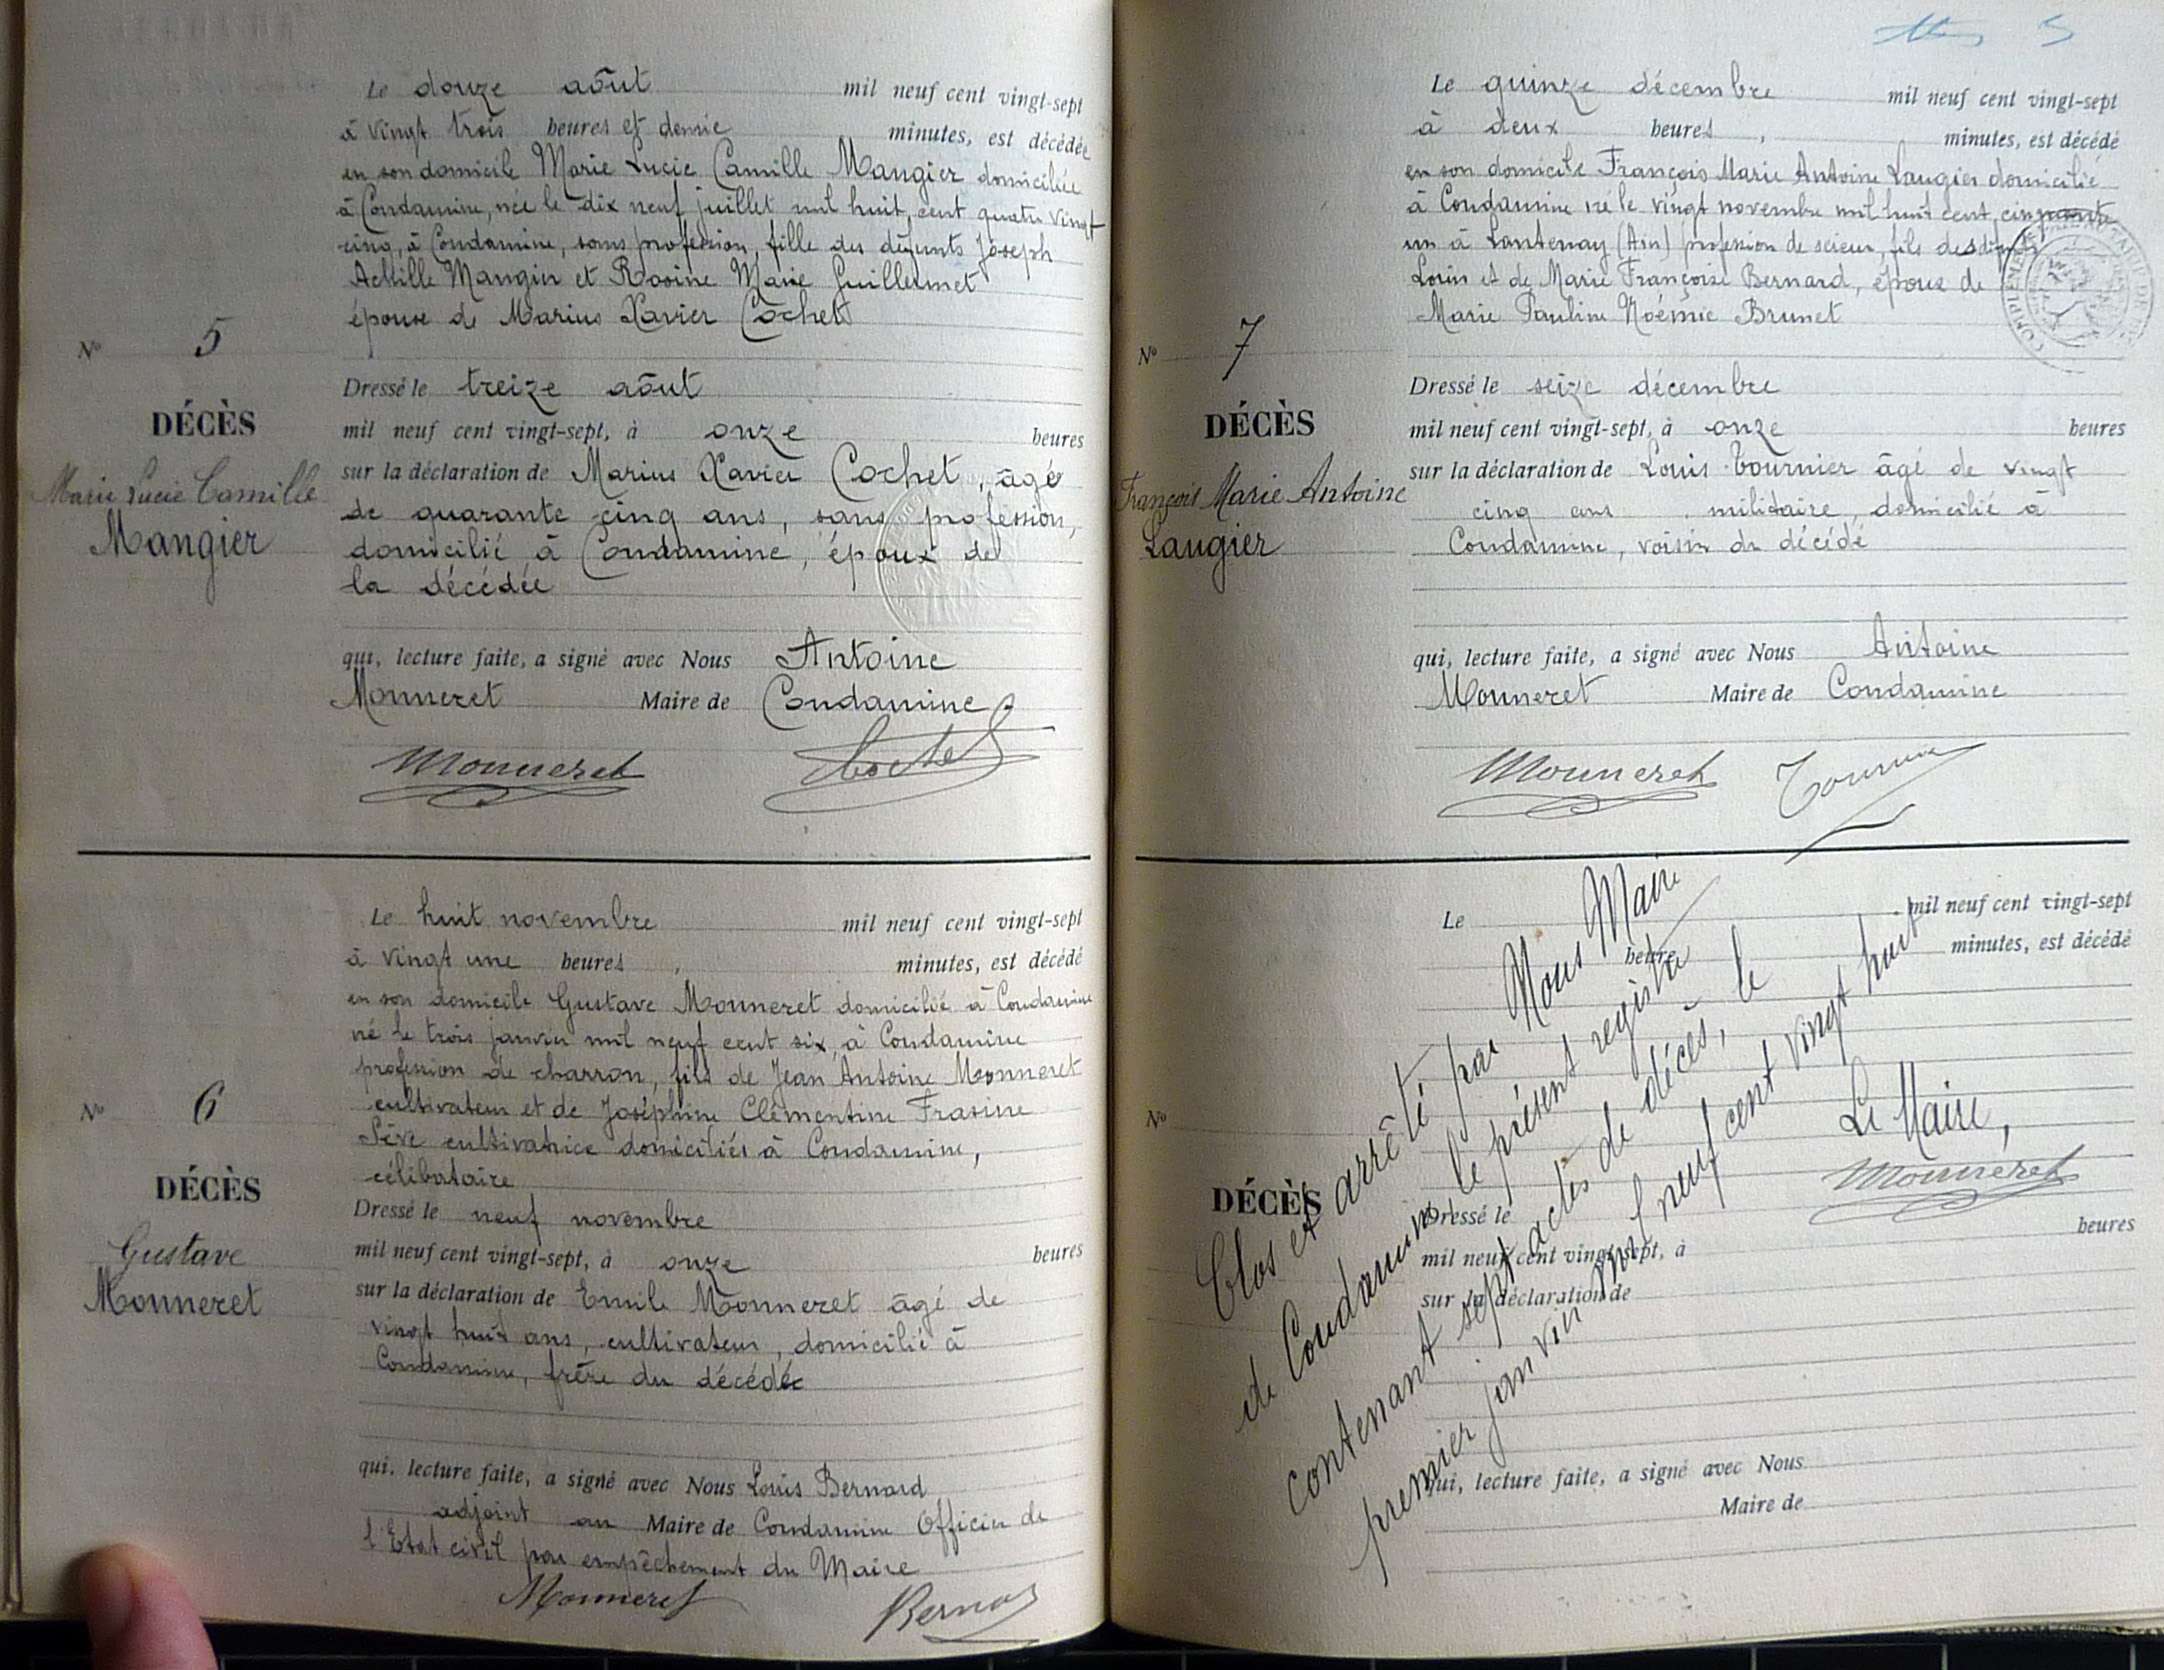 Le douze août mil neuf cent vingt-sept
à vingt trois heures et demie minutes, est décédée
en son domicile Marie Lucie Camille Mangier domiciliée
à Condamine, née le dix neuf juillet mil huit cent quatre vingt
cinq, à Condamine, sans profession, fille des défunts Joseph
Achille Mangier et Rosine Marie Guillermet
épouse de Marius Xavier Cochet
No 5
DÉCÈS
Marie Lucie Camille
Mangier
Dressé le treize août
mil neuf cent vingt-sept, à onze heures
sur la déclaration de Marius Xavier Cochet, âgé
de quarante cinq ans, sans profession,
domicilié à Condamine, époux de
la décédée
qui, lecture faite, a signé avec Nous Antoine
Monneret Maire de Condamine
Monneret Cochet
Le huit novembre mil neuf cent vingt-sept
à vingt une heures, minutes, est décédé
en son domicile Gustave Monneret domicilié à Condamine
né le trois janvier mil neuf cent six, à Condamine
profession de charron, fils de Jean Antoine Monneret
cultivateur et de Joséphine Clémentine Frasine
Sève cultivatrice domiciliés à Condamine,
célibataire
No 6
DÉCÈS
Gustave
Monneret
Dressé le neuf novembre
mil neuf cent vingt-sept, à onze heures
sur la déclaration de Emile Monneret âgé de
vingt huit ans, cultivateur, domicilié à
Condamine, frère du décédé
qui, lecture faite, a signé avec Nous Louis Bernard
adjoint au Maire de Condamine Officier de
l'Etat civil par empêchement du Maire
Monneret Bernard
Le quinze décembre mil neuf cent vingt-sept
à deux heures, minutes, est décédé
en son domicile François Marie Antoine Laugier domicilié
à Condamine né le vingt novembre mil huit cent cinquante
un à Lantenay (Ain) profession de scieur, fils des
Louis et de Marie Françoise Bernard, époux de
Marie Pauline Noémie Brunet
No 7
DÉCÈS
François Marie Antoine
Laugier
Dressé le seize décembre
mil neuf cent vingt-sept, à onze heures
sur la déclaration de Louis Tournier âgé de vingt
cinq ans, militaire, domicilié à
Condamine, voisin du décédé
qui, lecture faite, a signé avec Nous Antoine
Monneret Maire de Condamine
Monneret Tournier
Le mil neuf cent vingt-sept
heure minutes, est décédé
No
DÉCÈS
Dressé le
mil neuf cent vingt-sept, à heures
sur la déclaration de
qui, lecture faite, a signé avec Nous
Maire de
Clos et arrêté par Nous Maire
de Condamine, le présent registre
contenant sept actes de décès, le
premier janvier mil neuf cent vingt huit
Le Maire,
Monneret